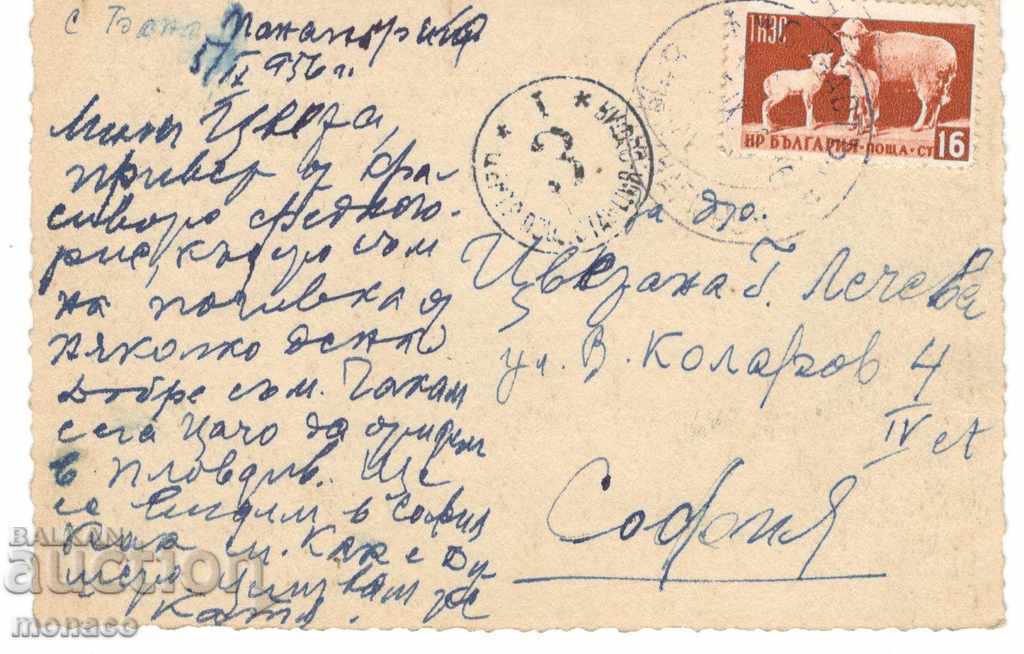 с Бана Панагюрище
5/IX 956 г.
Мила Цвета,
привет от кра-
сивото средного-
рие, където съм
на почивка от
няколко дена
Добре съм. Чакам
сега Цачо да отидем
в Пловдив. Ще
се видим в София
Как си. Как е
Катя.
ТКЗС
НР БЪЛГАРИЯ·ПОЩА·СТ 16
за др.
Цветана Г. Лечева
ул. В. Коларов 4
IV ет
София
BALKAN
auction
monaco